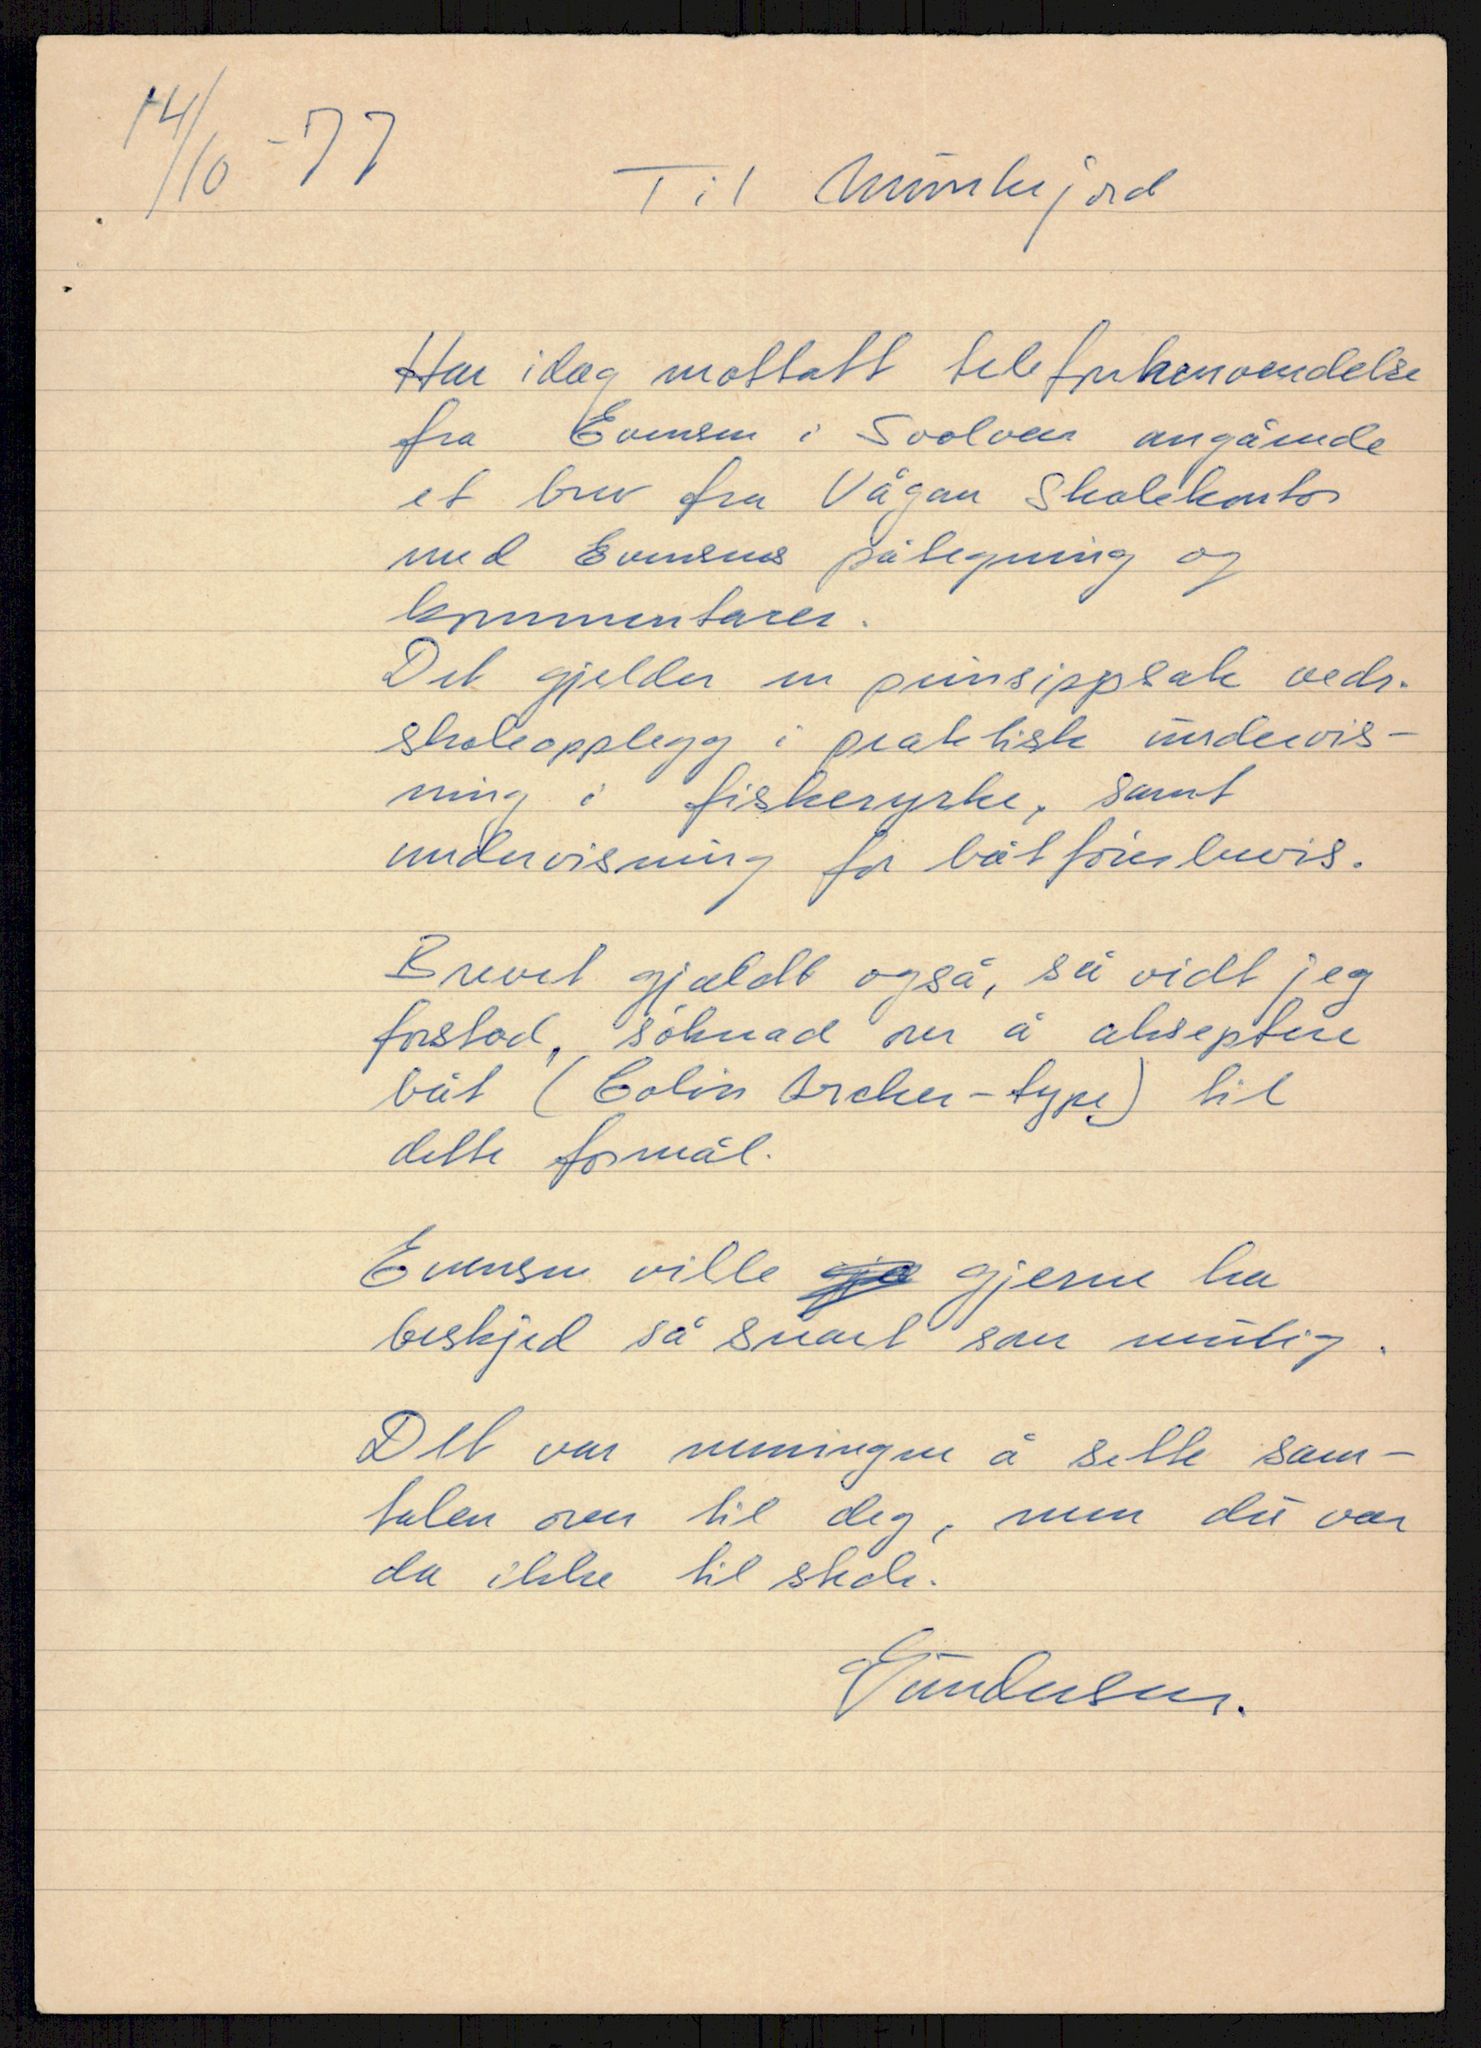 14/10 - 77
Til Munkejord
Har idag mottatt telefonhenvendelse
fra Evensen i Svolvær angående
et brev fra Vågan Skolekontor
med Evensens påtegning og
kommentarer.
Det gjelder en prinsippsak vedr.
skoleopplegg i praktisk undervis-
ning i fiskeryrke, samt
undervisning for båtførerbevis.
Brevet gjaldt også, så vidt jeg
forstod, söknad om å akseptere
båt (Colin Archer-type) til
dette formål.
Evensen ville gjerne ha
beskjed så snart som mulig.
Det var meningen å sette sam-
talen over til deg, men du var
da ikke til stede.
Gundersen.